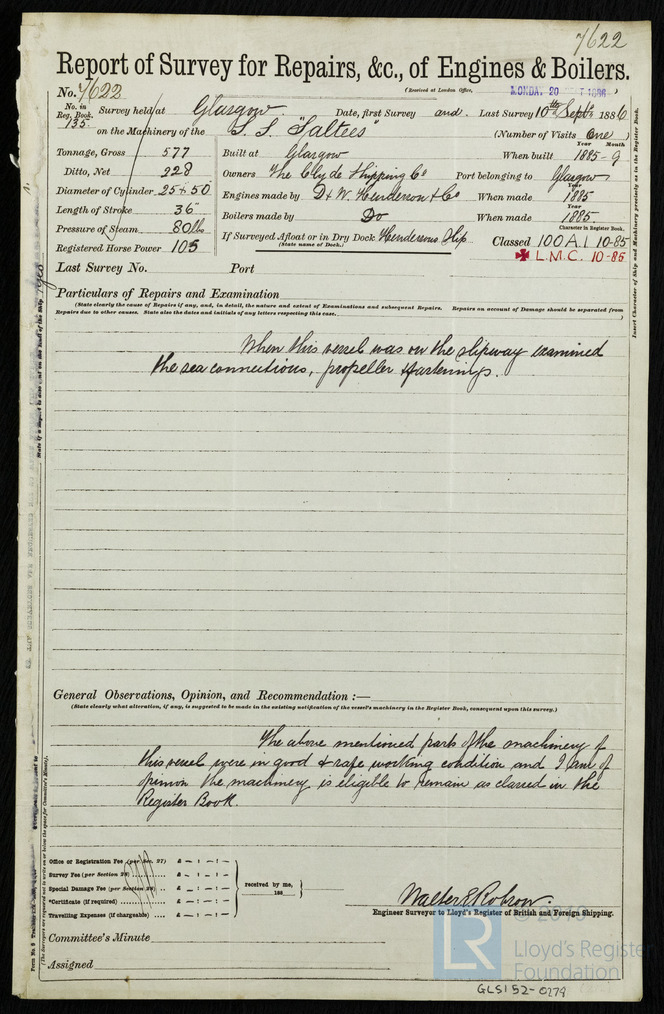 7622
Report of Survey for Repairs, &c., of Engines & Boilers.
(Received at London Office,
MONDAY 20
1886
No. 7622
No. in Reg. Book. 135
Survey held at Glasgow
Date, first Survey and Last Survey 10th Septr 1886
on the Machinery of the S.S. "Saltees"
(Number of Visits One)
Tonnage, Gross 577
Built at Glasgow
When built 1885-9
Year Month
Ditto, Net 228
Owners The Clyde Shipping Co
Port belonging to Glasgow
Diameter of Cylinder 25 & 50
Engines made by D & W. Henderson & Co
When made 1885
Year
Length of Stroke 36"
Boilers made by Do
When made 1885
Year
Pressure of Steam 80 lbs
If Surveyed Afloat or in Dry Dock Hendersons Slip
(State name of Dock.)
Character in Register Book.
Classed 100 A.1 10-85
Registered Horse Power 105
L.M.C. 10-85
Last Survey No. Port
Particulars of Repairs and Examination
(State clearly the cause of Repairs if any, and, in detail, the nature and extent of Examinations and subsequent Repairs. Repairs on account of Damage should be separated from
Repairs due to other causes. State also the dates and initials of any letters respecting this case.
When this vessel was on the slipway examined
the sea connections, propeller & fastenings.
General Observations, Opinion, and Recommendation :—
(State clearly what alteration, if any, is suggested to be made in the existing notification of the vessel's machinery in the Register Book, consequent upon this survey.)
The above mentioned parts of the machinery of
this vessel were in good & safe working condition and I am of
opinion the machinery is eligible to remain as classed in the
Register Book.
Office or Registration Fee (per Sec. 27) £ – : – : –
Survey Fee (per Section 28) £ – : – : –
Special Damage Fee (per Section 28) £ – : – : –
*Certificate (if required) £ – : – : –
Travelling Expenses (if chargeable) £ – : – : –
received by me,
188
Walter S Robson.
Engineer Surveyor to Lloyd's Register of British and Foreign Shipping.
Committee's Minute
Assigned
Insert Character of Ship and Machinery precisely as in the Register Book.
© 2019
LR
Lloyd's Register
Foundation
GLS152-0279